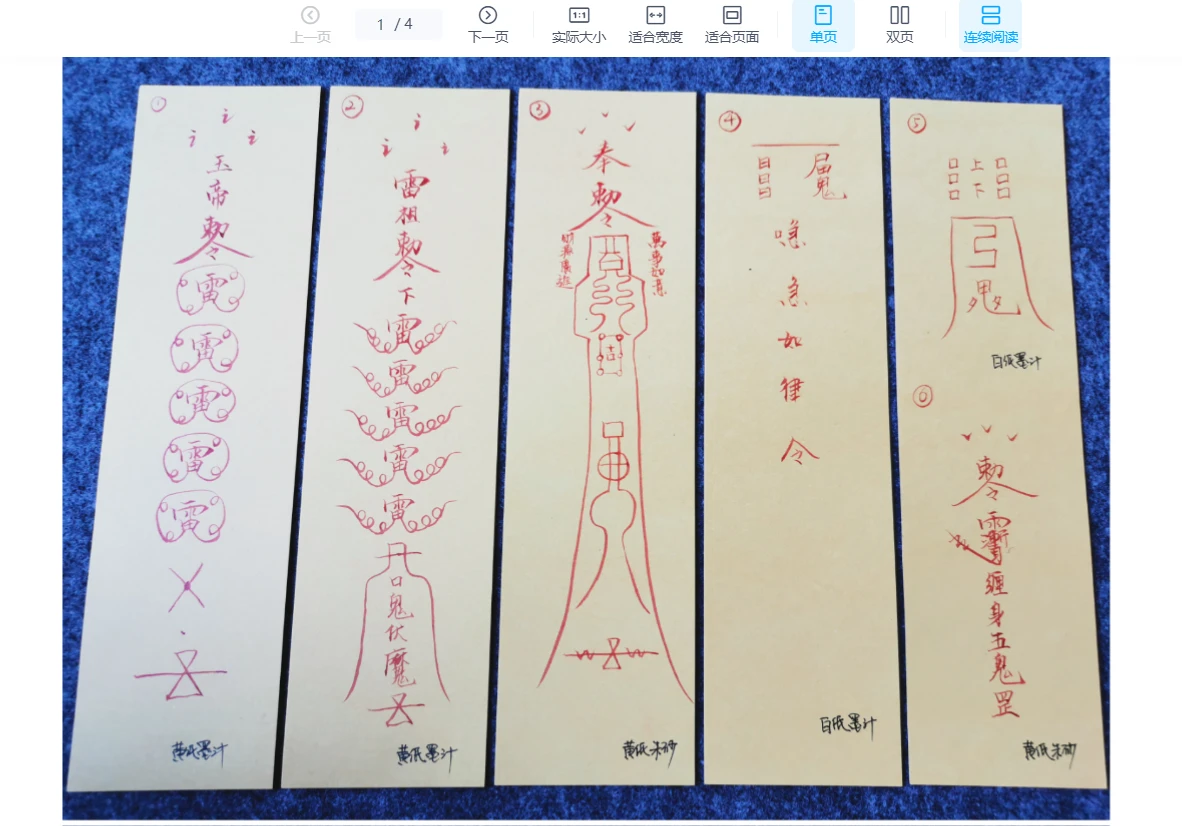 上一页
1 / 4
下一页
实际大小
适合宽度
适合页面
单页
双页
连续阅读
①
玉
帝
敕
令
雷
雷
雷
雷
雷
黄纸墨汁
②
雷
祖
敕
令
下
雷
雷
雷
雷
雷
口
鬼
伏
魔
黄纸墨汁
③
奉
敕
令
萬事如意
吉
黄纸朱砂
④
急
急
如
律
令
白纸墨汁
⑤
上
下
弓
鬼
白纸墨汁
敕
令
缠
身
五
鬼
罡
黄纸朱砂